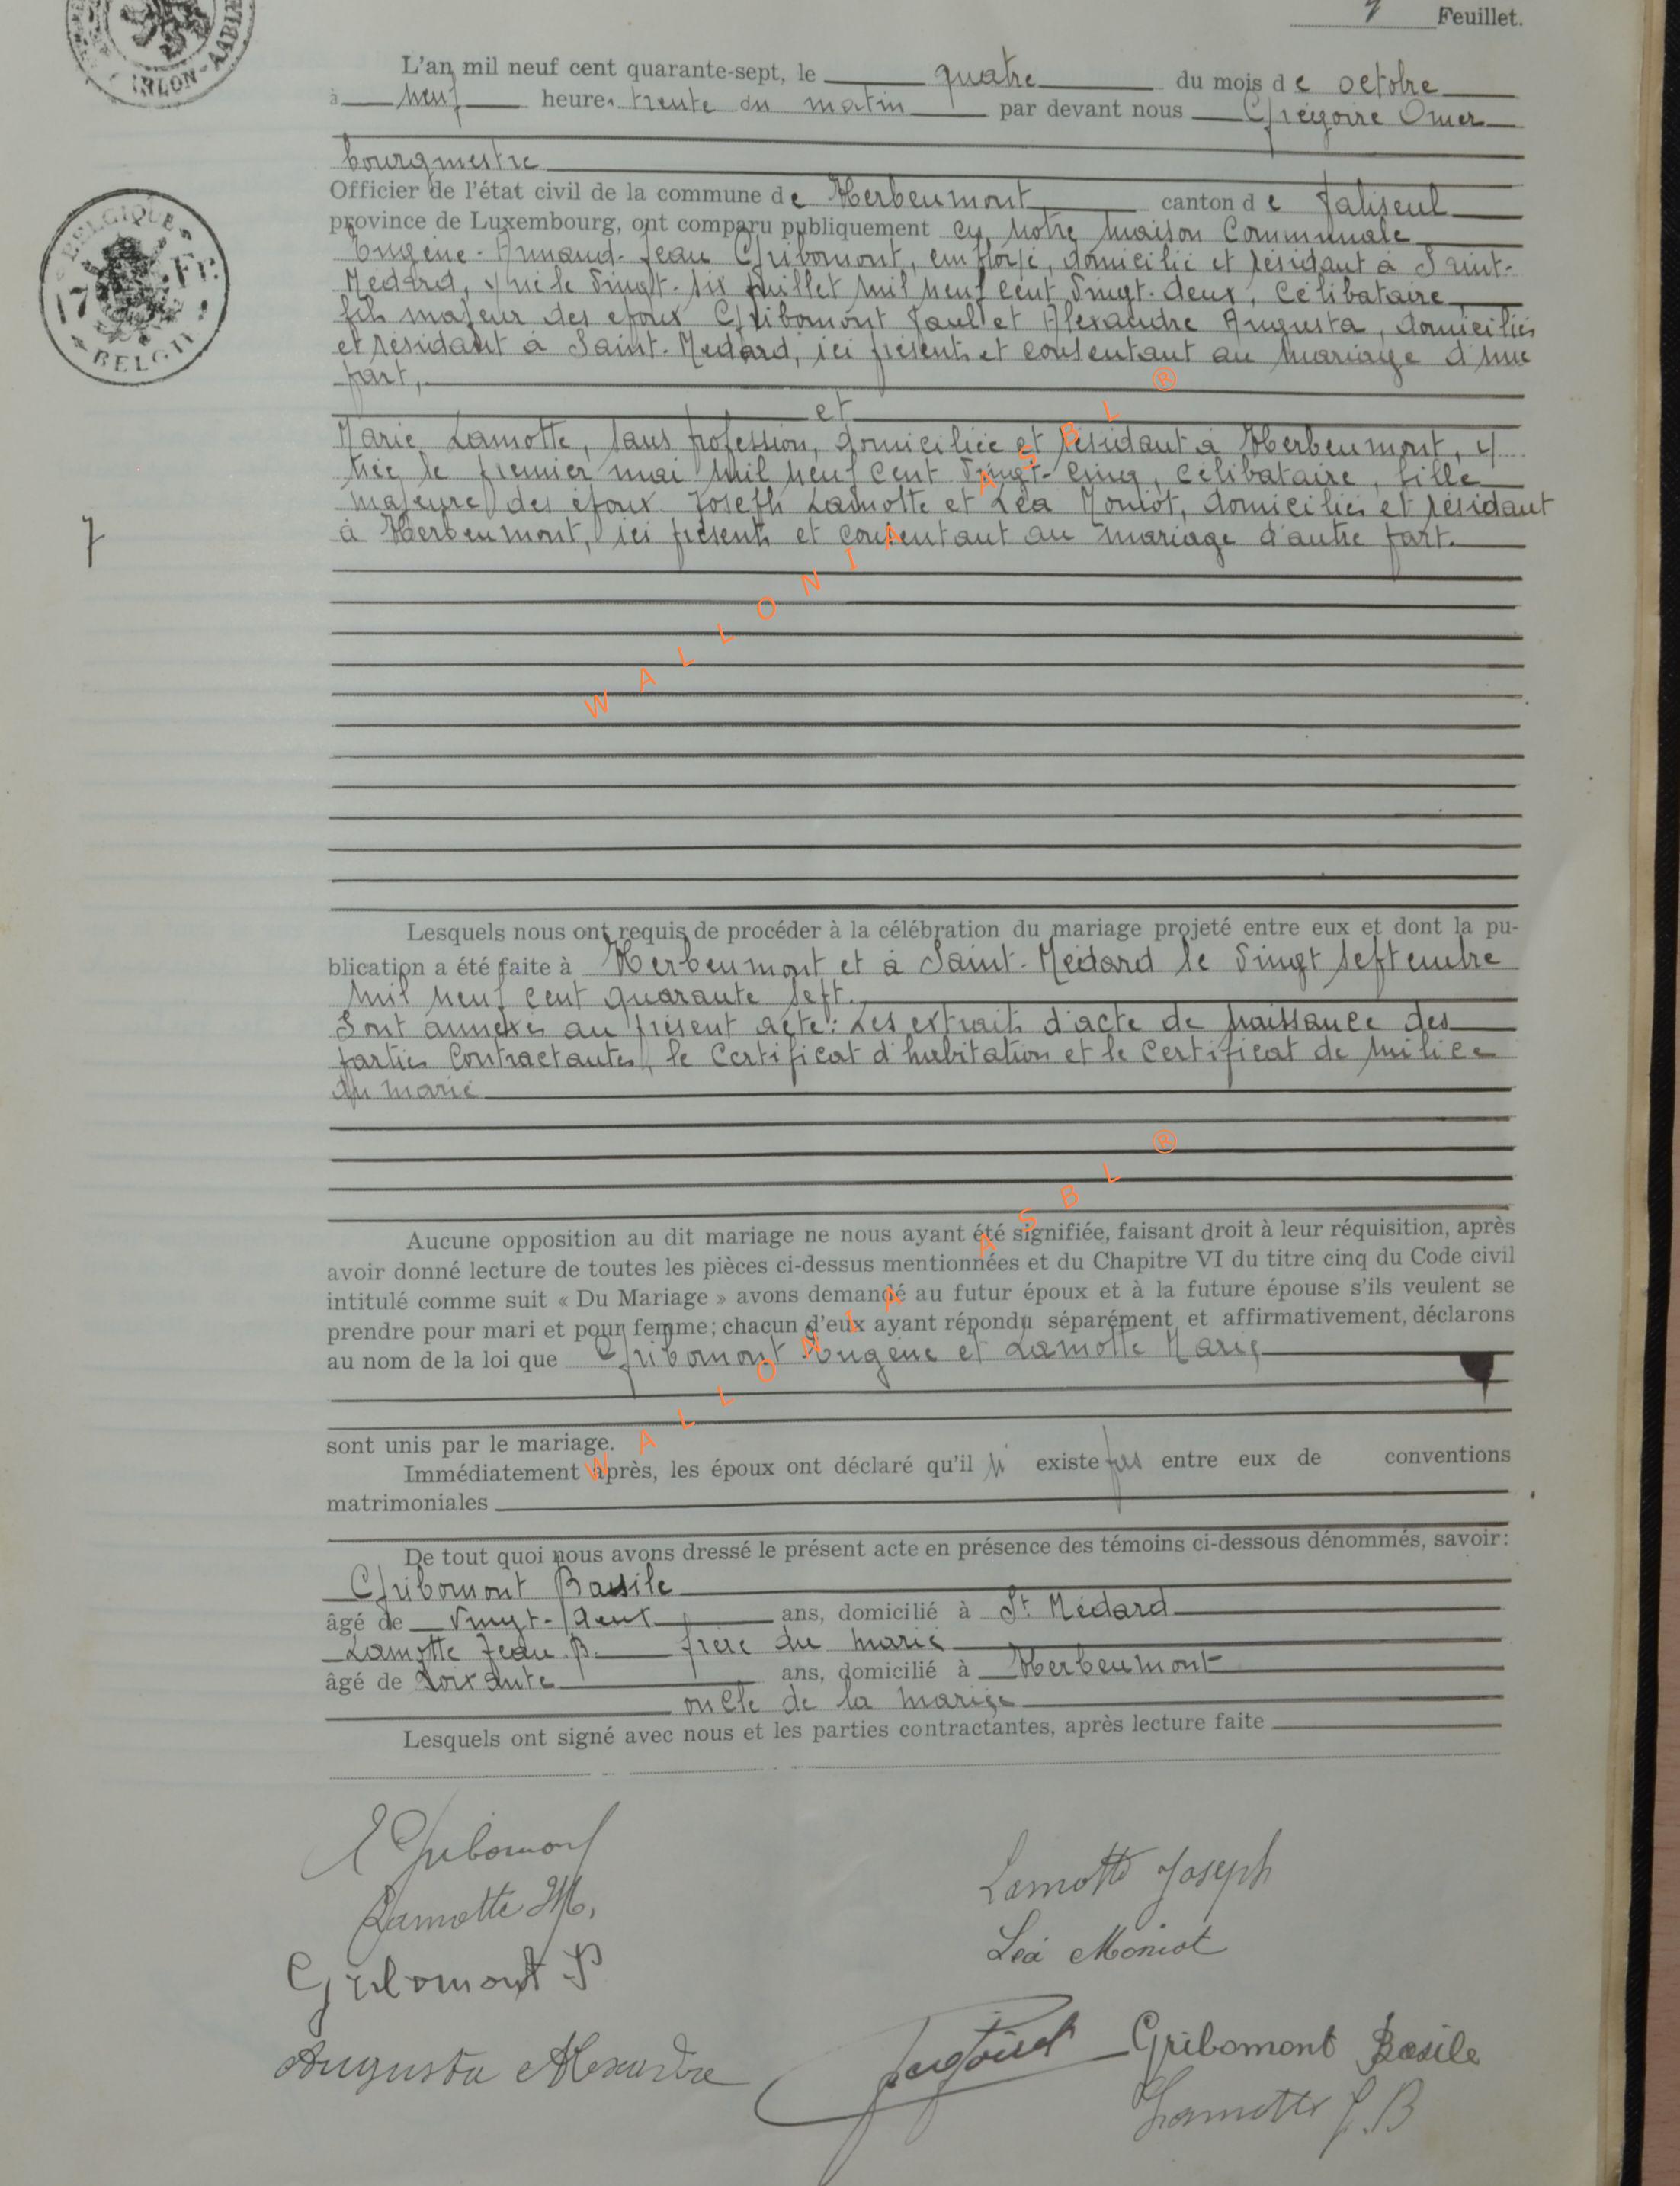 7 Feuillet.
ARLON-AABLE
L'an mil neuf cent quarante-sept, le quatre du mois de octobre
à neuf heures trente du matin par devant nous Grégoire Omer
bourgmestre
Officier de l'état civil de la commune de Herbeumont canton de Paliseul
province de Luxembourg, ont comparu publiquement en notre maison Communale
Eugène-Armand-Jean Gribomont, employé, domicilié et résidant à Saint-
Médard, y né le vingt-six juillet mil neuf cent vingt-deux, célibataire
fils majeur des époux Gribomont Paul et Alexandre Augusta, domiciliés
et résidant à Saint-Médard, ici présents et consentant au mariage d'une
part,
et
Marie Lamotte, sans profession, domiciliée et résidant à Herbeumont, y
née le premier mai mil neuf cent vingt-cinq, célibataire, fille
majeure des époux Joseph Lamotte et Léa Moniot, domiciliés et résidant
à Herbeumont, ici présents et consentant au mariage d'autre part.
BELGIQUE
7 FR
BELGIË
7
WALLONIA ASBL ®
Lesquels nous ont requis de procéder à la célébration du mariage projeté entre eux et dont la pu-
blication a été faite à Herbeumont et à Saint-Médard le vingt septembre
mil neuf cent quarante sept.
Sont annexés au présent acte: Les extraits d'acte de naissance des
parties contractantes, le certificat d'habitation et le certificat de milice
du marié
WALLONIA ASBL ®
Aucune opposition au dit mariage ne nous ayant été signifiée, faisant droit à leur réquisition, après
avoir donné lecture de toutes les pièces ci-dessus mentionnées et du Chapitre VI du titre cinq du Code civil
intitulé comme suit « Du Mariage » avons demandé au futur époux et à la future épouse s'ils veulent se
prendre pour mari et pour femme; chacun d'eux ayant répondu séparément et affirmativement, déclarons
au nom de la loi que Gribomont Eugène et Lamotte Marie
sont unis par le mariage.
Immédiatement après, les époux ont déclaré qu'il n' existe pas entre eux de conventions
matrimoniales
De tout quoi nous avons dressé le présent acte en présence des témoins ci-dessous dénommés, savoir:
Gribomont Basile
âgé de vingt-deux ans, domicilié à St Médard
Lamotte Jean B. frère du marié
âgé de soixante ans, domicilié à Herbeumont
oncle de la mariée
Lesquels ont signé avec nous et les parties contractantes, après lecture faite
E Gribomont
Lamotte M.
Gribomont P
Augusta Alexandre
Lamotte Joseph
Léa Moniot
Gribomont Basile
Lamotte J.B